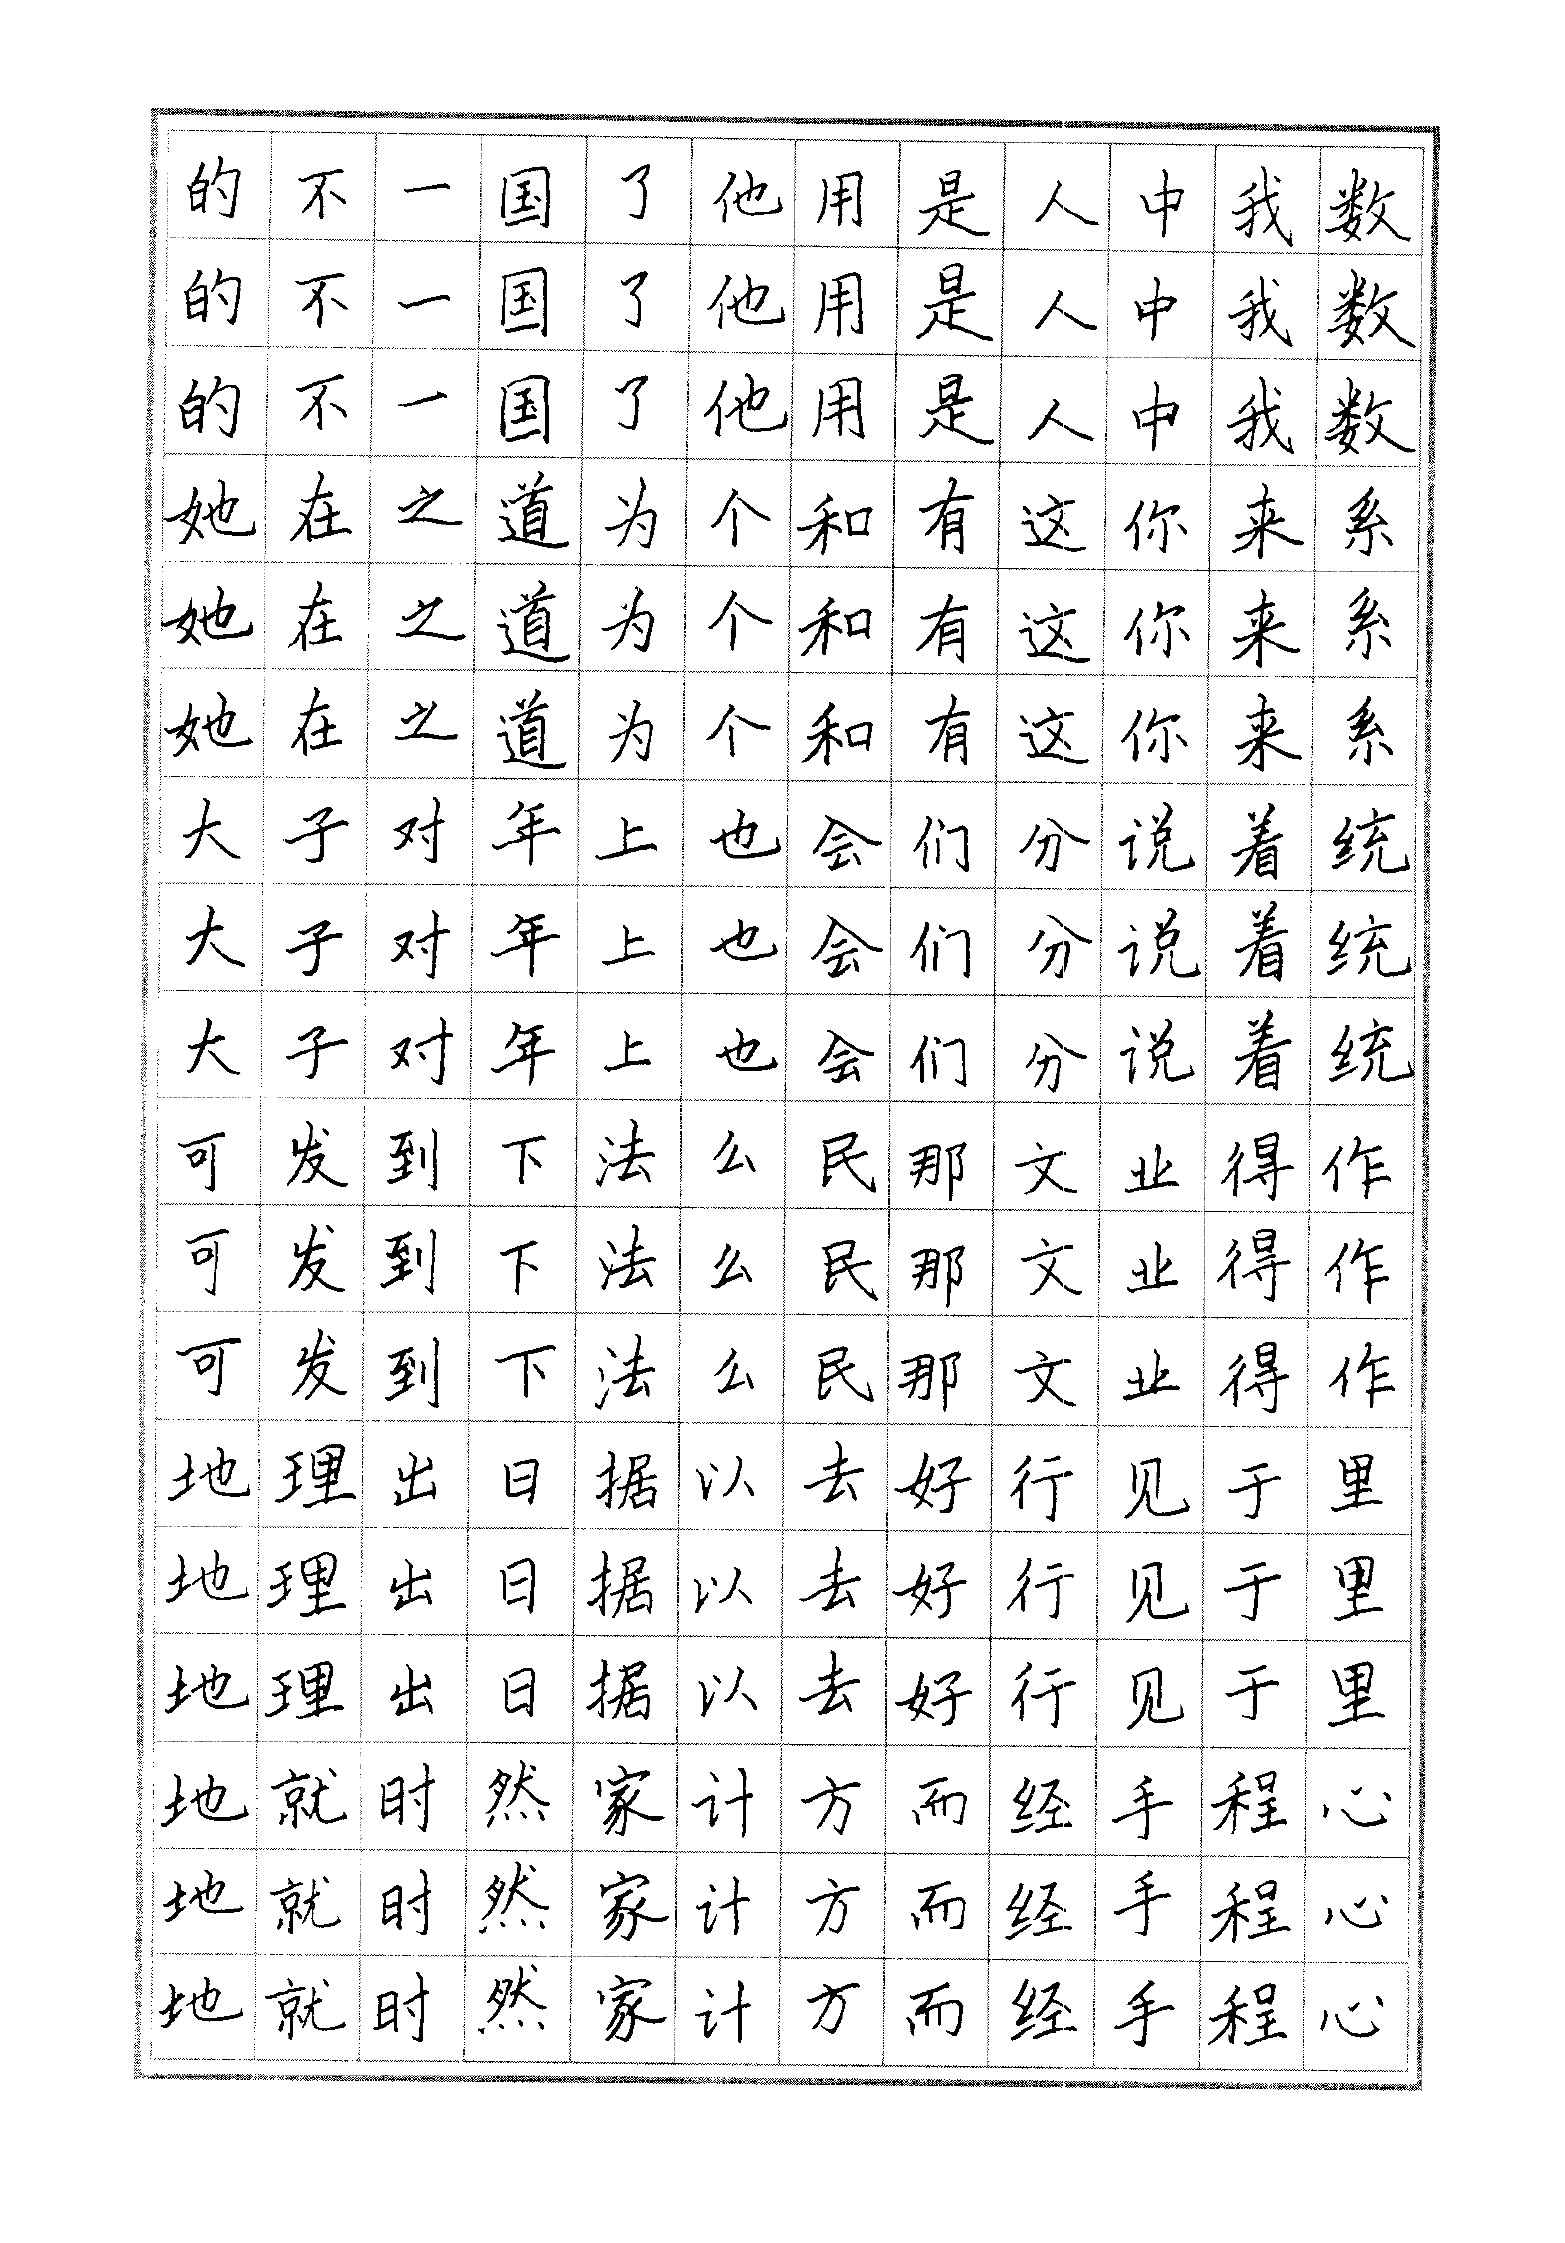 的不一国了他用是人中我数
的不一国了他用是人中我数
的不一国了他用是人中我数
她在之道为个和有这你来系
她在之道为个和有这你来系
她在之道为个和有这你来系
大子对年上也会们分说着统
大子对年上也会们分说着统
大子对年上也会们分说着统
可发到下法么民那文业得作
可发到下法么民那文业得作
可发到下法么民那文业得作
地理出日据以去好行见于里
地理出日据以去好行见于里
地理出日据以去好行见于里
地就时然家计方而经手程心
地就时然家计方而经手程心
地就时然家计方而经手程心